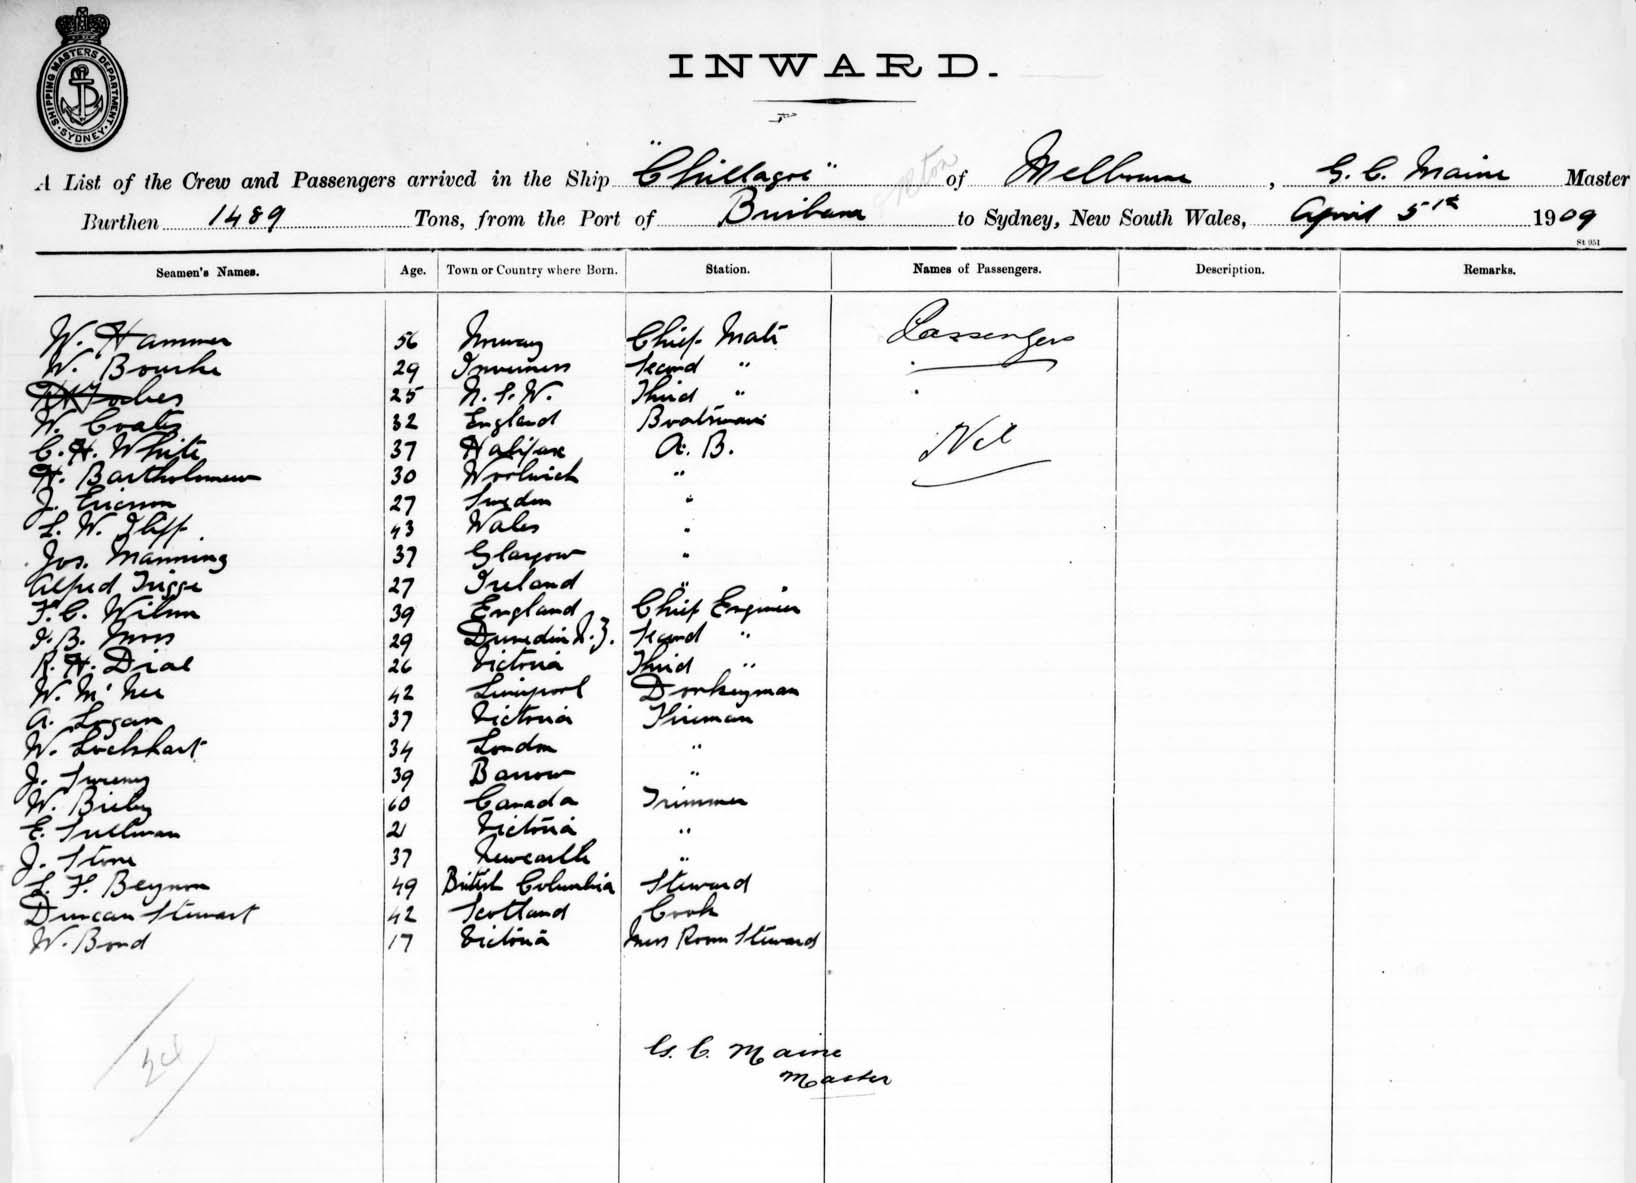 SHIPPING MASTERS DEPARTMENT. SYDNEY.
INWARD.
A List of the Crew and Passengers arrived in the Ship "Chillagoe" of Melbourne, G. C. Maine Master
Burthen 1489 Tons, from the Port of Brisbane to Sydney, New South Wales, April 5th 1909
St 951
Seamen's Names. Age. Town or Country where Born. Station. Names of Passengers. Description. Remarks.
W. Hammer 56 Norway Chief Mate Passengers
W. Bourke 29 Inverness Second "
Forbes 25 N. S. W. Third "
W. Coates 32 England Boatswain
C. H. White 37 Halifax A. B. Nil
H. Bartholomew 30 Woolwich "
J. Ericson 27 Sweden "
L. W. 43 Wales "
Jos. Manning 37 Glasgow "
Alfred Trigge 27 Ireland "
F. C. Wilson 39 England Chief Engineer
J. B. Moss 29 Dunedin N. Z. Second "
R. H. Dial 26 Victoria Third "
W. McNee 42 Liverpool Donkeyman
A. Logan 37 Victoria Fireman
W. Lockhart 34 London "
J. Sweeney 39 Barrow "
W. 60 Canada Trimmer
E. Sullivan 21 Victoria "
J. Stone 37 Newcastle "
L. F. Beynon 49 British Columbia Steward
Duncan Stewart 42 Scotland Cook
W. Bond 17 Victoria Mess Room Steward
G. C. Maine
Master